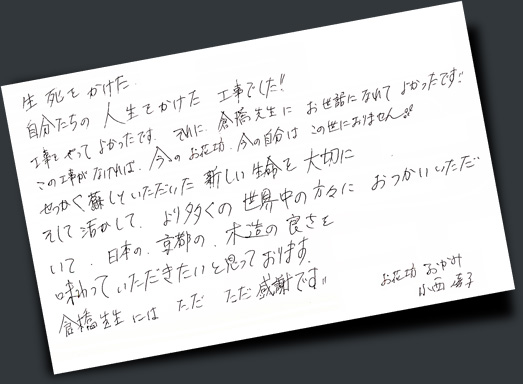 生死をかけた
自分たちの人生をかけた工事でした!!
工事をやってよかったです。それに、倉橋先生にお世話になれてよかったです!!
この工事がなければ、今のお花坊、今の自分はこの世におりません。
せっかく蘇しといただいた新しい生命を大切に
そして活かして、より多くの世界中の方々におつかいいただ
いて、日本の、京都の、木造の良さを
味わっていただきたいと思っております。
倉橋先生にはただただ感謝です!!
お花坊 おかみ
小西